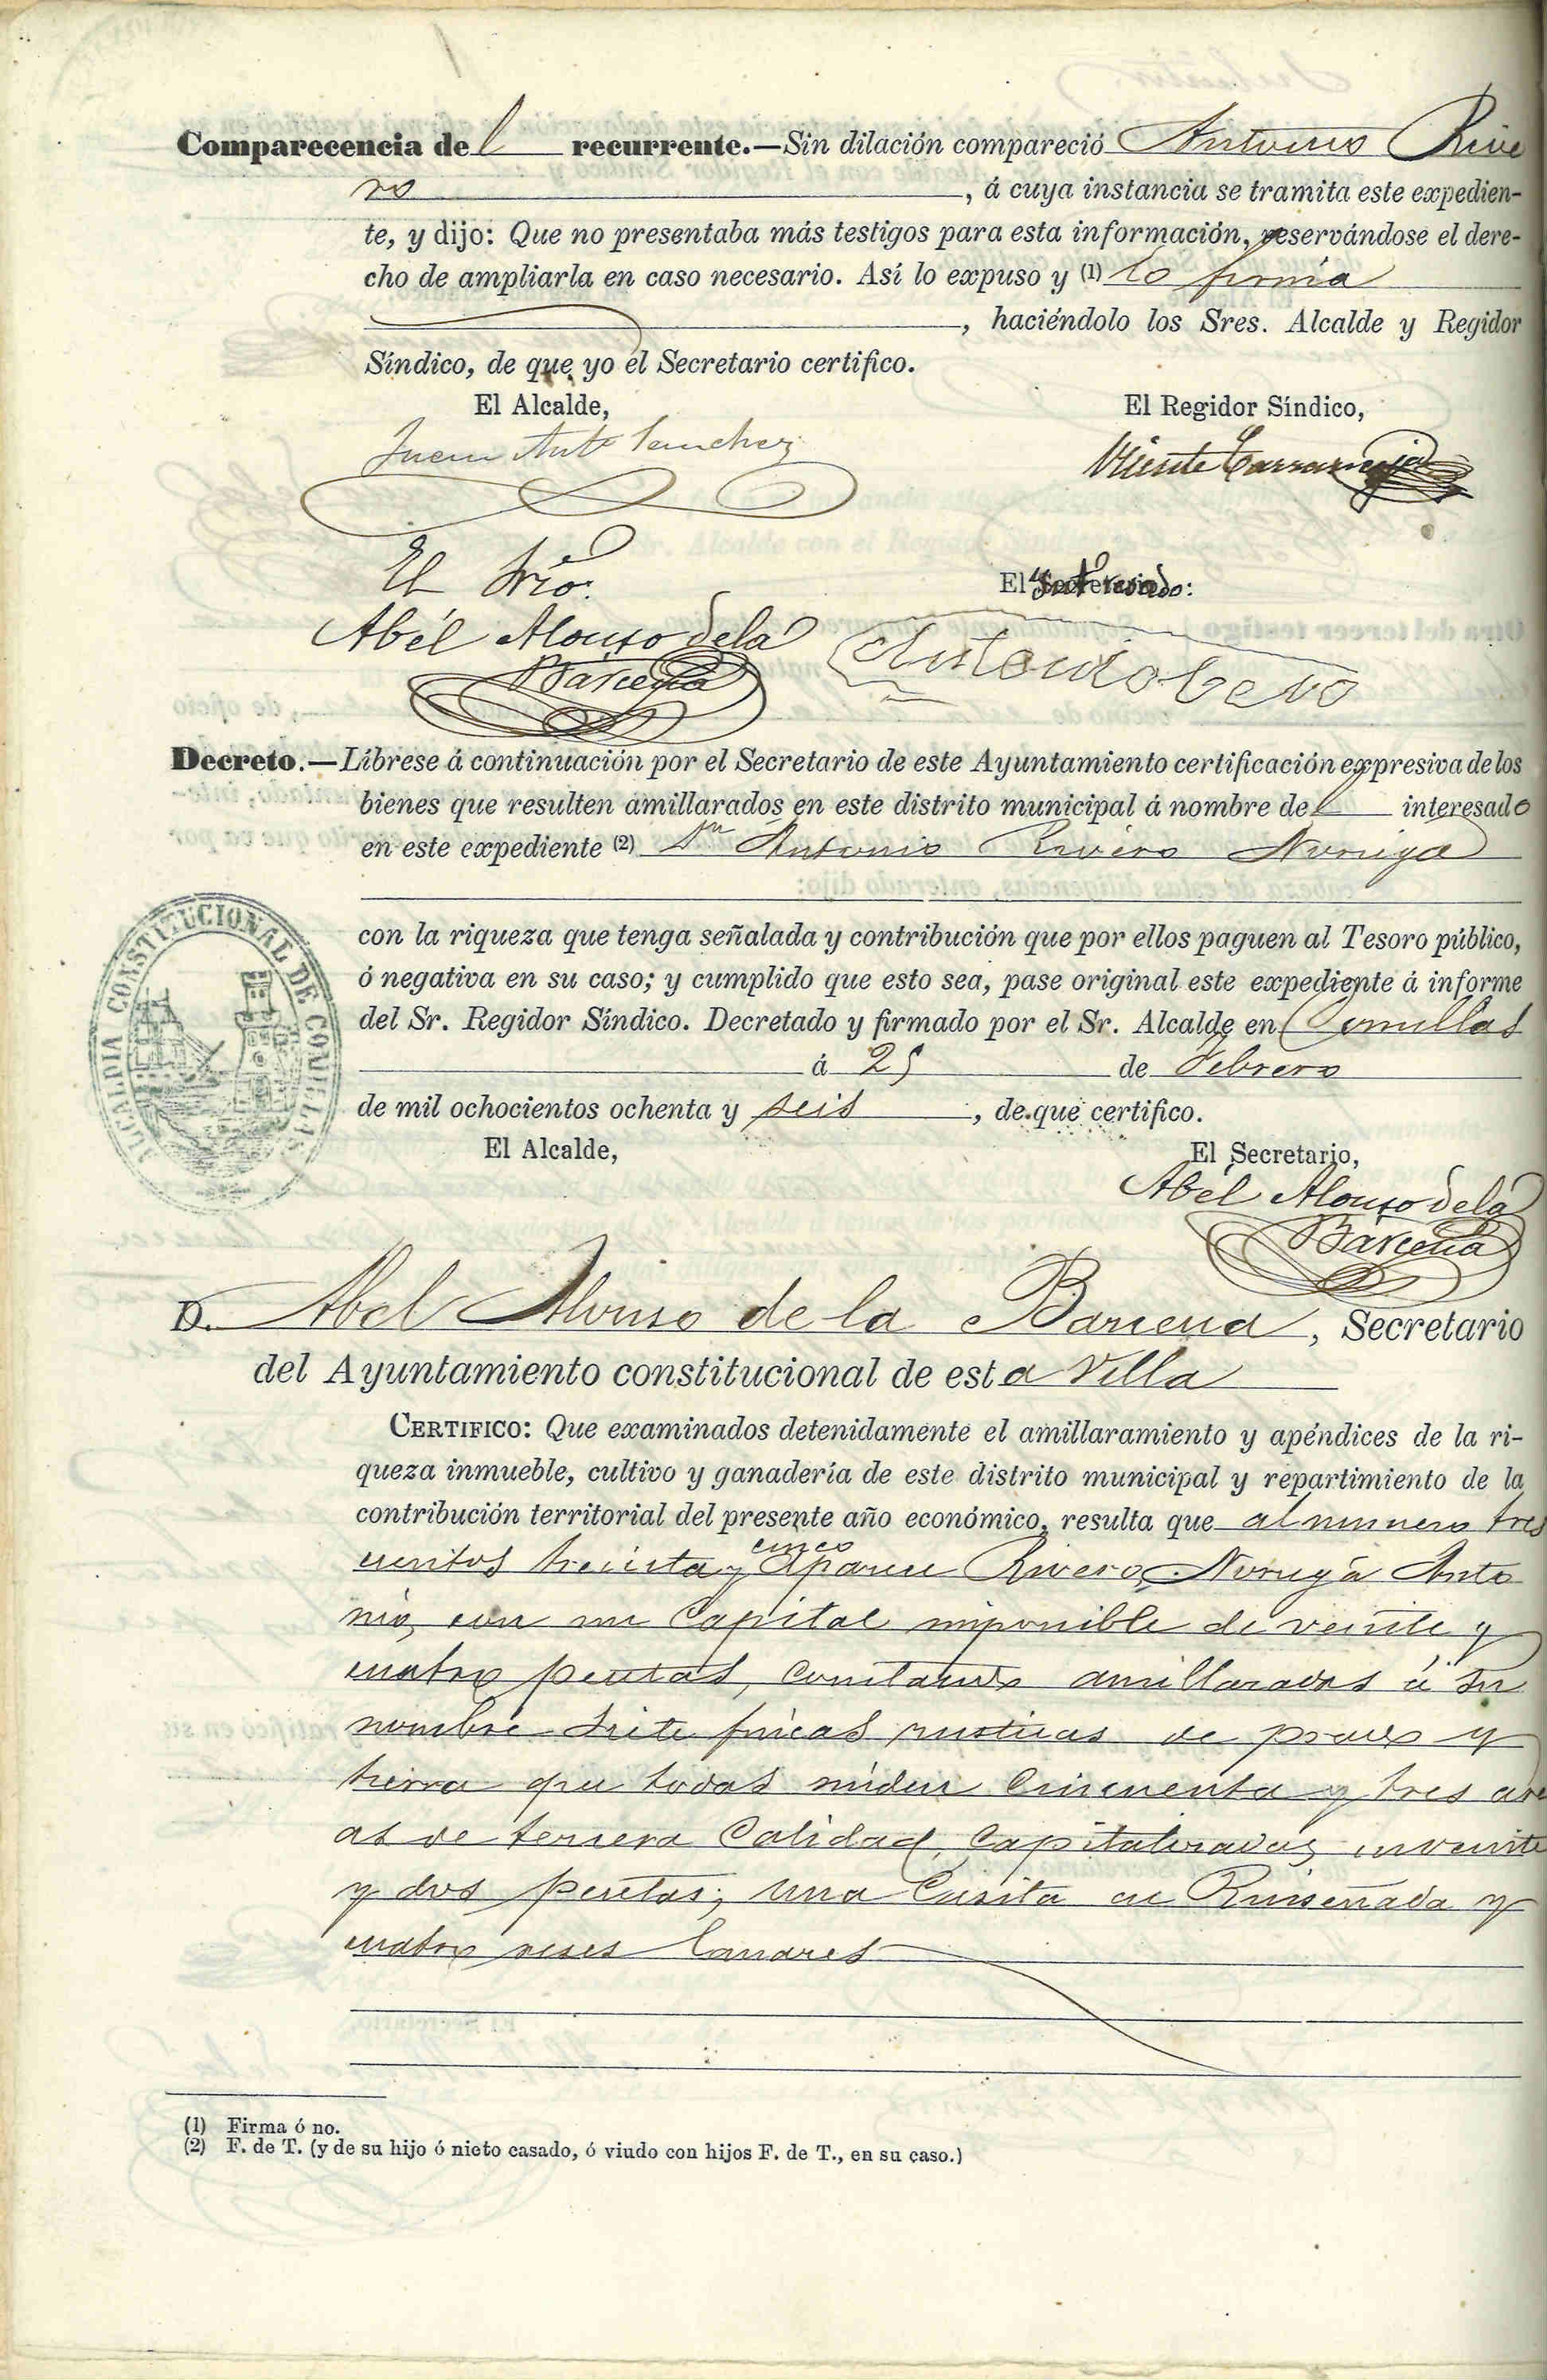 Comparecencia del recurrente.—Sin dilación compareció Antonio Rive
ro, á cuya instancia se tramita este expedien-
te, y dijo: Que no presentaba más testigos para esta información, reservándose el dere-
cho de ampliarla en caso necesario. Así lo expuso y (1) lo firma
, haciéndolo los Sres. Alcalde y Regidor
Síndico, de que yo el Secretario certifico.
El Alcalde, El Regidor Síndico,
Juan Antº Sanchez Vicente
El Srio. El Interesado:
Abél Alonso dela Antonio
Bárcena
Decreto.—Líbrese á continuación por el Secretario de este Ayuntamiento certificación expresiva de los
bienes que resulten amillarados en este distrito municipal á nombre del interesado
en este expediente (2) Dn Antonio Rivero Noriega
con la riqueza que tenga señalada y contribución que por ellos paguen al Tesoro público,
ó negativa en su caso; y cumplido que esto sea, pase original este expediente á informe
del Sr. Regidor Síndico. Decretado y firmado por el Sr. Alcalde en Comillas
á 25 de Febrero
de mil ochocientos ochenta y seis, de que certifico.
ALCALDIA CONSTITUCIONAL DE COMILLAS
El Alcalde, El Secretario,
Abél Alonso dela
Bárcena
D. Abel Alonso de la Barcena, Secretario
del Ayuntamiento constitucional de esta Villa
CERTIFICO: Que examinados detenidamente el amillaramiento y apéndices de la ri-
queza inmueble, cultivo y ganadería de este distrito municipal y repartimiento de la
contribución territorial del presente año económico, resulta que al numero tres
cientos treinta y cinco aparece Rivero Noriega Anto
nio, con un Capital imponible de veinte y
cuatro pesetas, constando amillaradas á su
nombre siete fincas rusticas de prado y
tierra que todas miden Cincuenta y tres are
as de tercera Calidad, Capitalizadas en veinte
y dos pesetas; una Casita en Ruiseñada y
cuatro reses lanares
(1) Firma ó no.
(2) F. de T. (y de su hijo ó nieto casado, ó viudo con hijos F. de T., en su caso.)